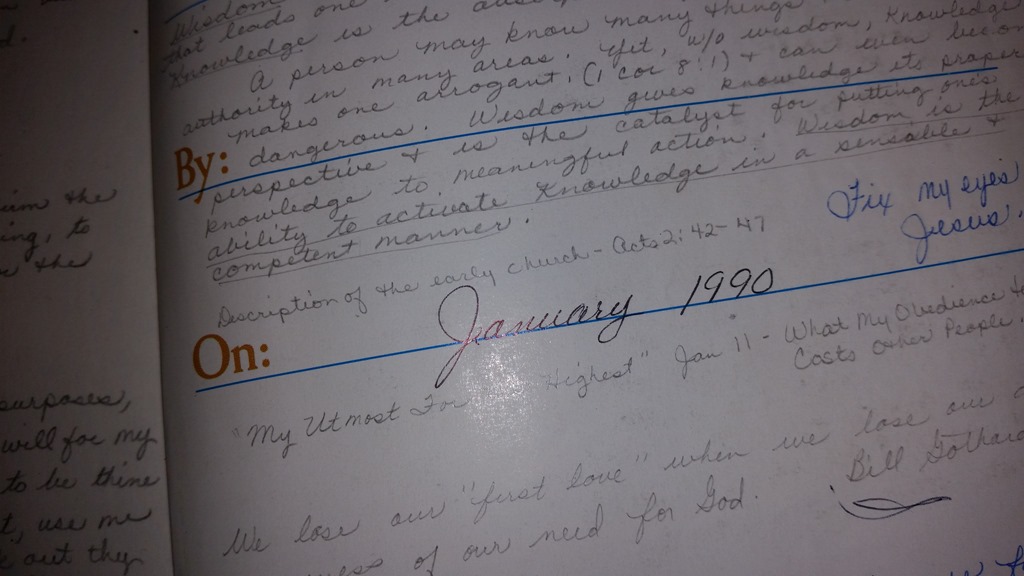 d.
Wisdom
that leads one
Knowledge is the
A person may know many things
authority in many areas. Yet, w/o wisdom, knowledge
makes one arrogant, (1 Cor 8:1) + can even
By: dangerous. Wisdom gives knowledge its proper
perspective + is the catalyst for putting one's
knowledge to meaningful action. Wisdom is the
ability to activate knowledge in a sensible +
competent manner.
Fix my eyes
Jesus.
Description of the early church - Acts 2: 42-47
On: January 1990
"My Utmost For Highest" Jan 11 - What My Obedience to
Costs Other People.
We lose our "first love" when we lose our
of our need for God. Bill
the
ing, to
the
purposes,
will for my
to be thine
t, use me
out thy